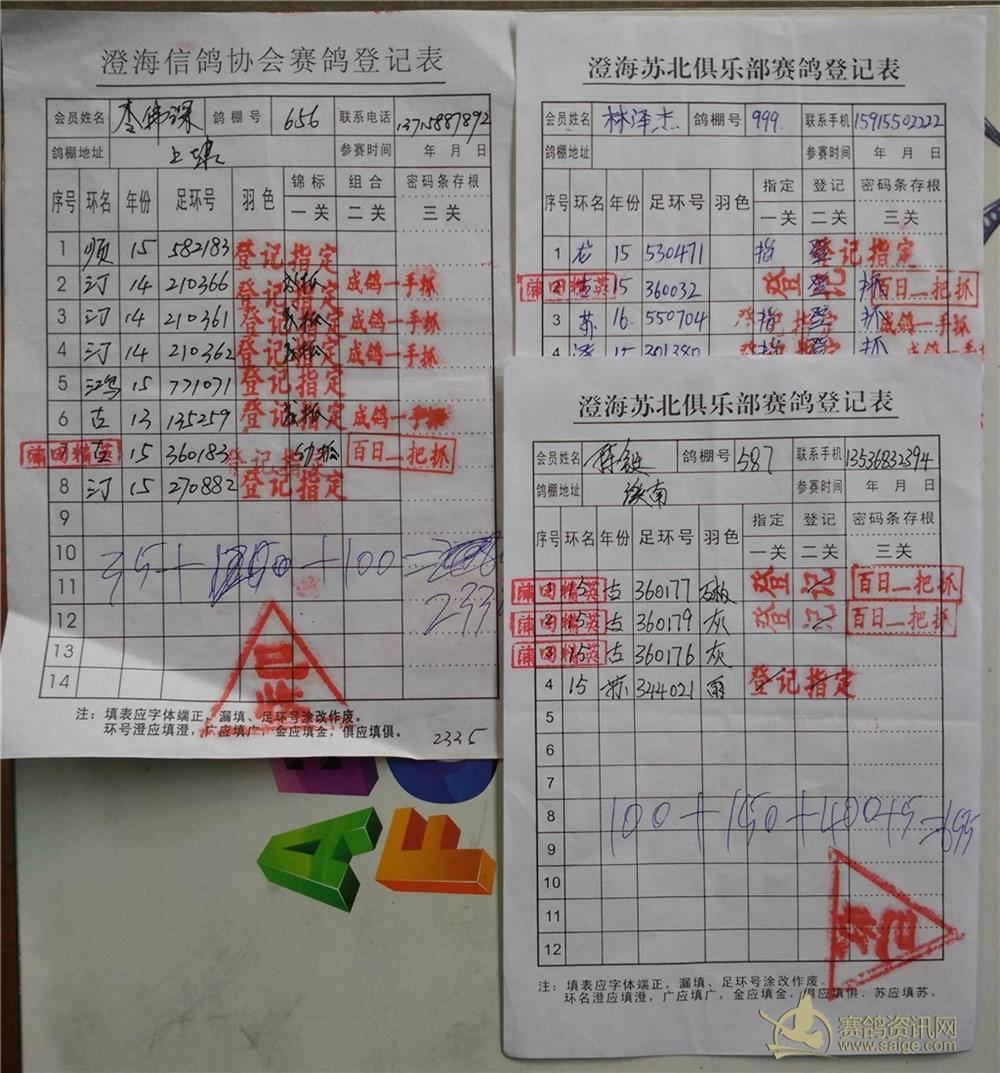 澄海信鸽协会赛鸽登记表
会员姓名 李伟深 鸽棚号 656 联系电话 13715887892
鸽棚地址 上埭 参赛时间 年 月 日
序号 环名 年份 足环号 羽色 锦标 组合 密码条存根
一关 二关 三关
1 顺 15 582183 登记指定
2 汀 14 210366 登记指定 成鸽一手抓
3 汀 14 210361 登记指定 成鸽一手抓
4 汀 14 210362 登记指定 成鸽一手抓
5 鸿 15 771071 登记指定
6 古 13 135259 登记指定 成鸽一手抓
7 蒲田精英 古 15 360183 登记指定 幼抓 百日一把抓
8 汀 15 270882 登记指定
9
10
11
12
13
14
已收
注:填表应字体端正,漏填、足环号涂改作废。
环号澄应填澄,广应填广,金应填金,俱应填俱。
2335
澄海苏北俱乐部赛鸽登记表
会员姓名 林泽杰 鸽棚号 999 联系手机 15915502222
鸽棚地址 参赛时间 年 月 日
序号 环名 年份 足环号 羽色 指定 登记 密码条存根
一关 二关 三关
1 龙 15 530471 指 登 登记指定
2 蒲田精英 古 15 360032 登记 登 抓 百日一把抓
3 苏 16 550704 指 登 抓 成鸽一手抓
4 15 301380 指 登 抓 成鸽一手抓
澄海苏北俱乐部赛鸽登记表
会员姓名 鸽棚号 587 联系手机 13536832394
鸽棚地址 参赛时间 年 月 日
序号 环名 年份 足环号 羽色 指定 登记 密码条存根
一关 二关 三关
1 蒲田精英 15 古 360177 登记 百日一把抓
2 蒲田精英 15 古 360179 灰 登记 百日一把抓
3 蒲田精英 15 古 360176 灰
4 15 苏 344021 雨 登记指定
5
6
7
8 100+150+400+5=655
9
10
11
12
已收
注:填表应字体端正,漏填、足环号涂改作废。
环名澄应填澄,广应填广,金应填金,俱应填俱、苏应填苏。
A F
赛鸽资讯网
www.saige.com